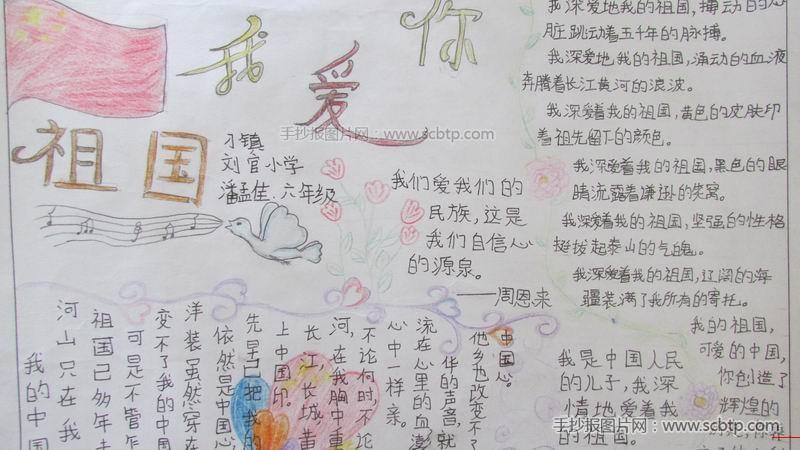 我爱你
祖国
刁镇
刘官小学
潘孟佳.六年级
手抄报图片网:www.scbtp.com
我们爱我们的
民族,这是
我们自信心
的源泉。
——周恩来
我深爱地我的祖国,搏动的心
脏跳动着五千年的脉搏。
我深爱地我的祖国,涌动的血液
奔腾着长江黄河的浪波。
我深爱着我的祖国,黄色的皮肤印
着祖先留下的颜色。
我深爱着我的祖国,黑色的眼
睛流露着谦逊的笑窝。
我深爱着我的祖国,坚强的性格
挺拔起泰山的气魄。
我深爱着我的祖国,辽阔的海
疆装满了我所有的寄托。
我的中国
河山只在我
祖国已多年未
可是不管怎
变不了我的中国
洋装虽然穿在
依然是中国心
先早已把我的
上中国印
长江,长城,黄
河,在我胸中重
不论何时不论
心中一样亲。
流在心里的血澎
华的声音,就
他乡也改变不了
中国心
我是中国人民
的儿子,我深
情地爱着我
的祖国。
我的祖国,
可爱的中国,
你创造了
辉煌的
手抄报图片网:www.scbtp.com